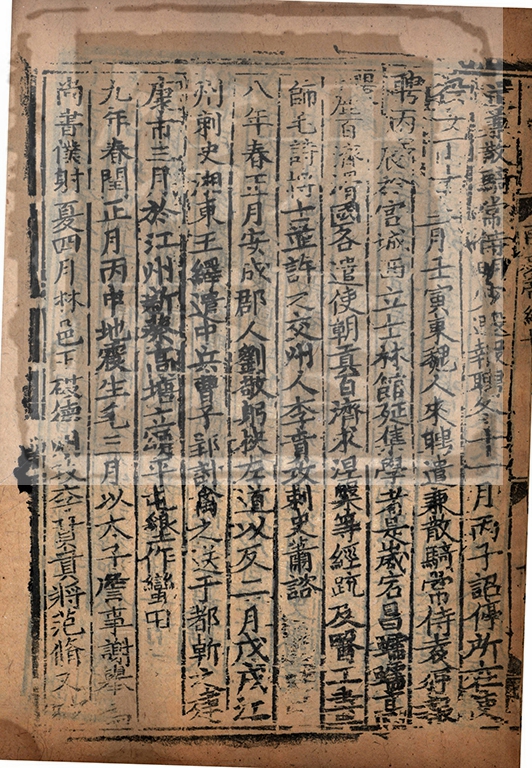 兼散騎常侍明少遐報聘冬十一月丙子詔停所在使
役女丁十二月壬寅東魏人來聘遣兼散騎常侍袁狎報
聘丙辰於宮城西立士林館延集學者是歲宕昌蠕蠕高
麗百濟滑國各遣使朝貢百濟求涅槃等經疏及醫工畫
師毛詩博士並許之交州人李賁攻刺史蕭諮
八年春正月安成郡人劉敬躬挾左道以反二月戊戌江
州刺史湘東王繹遣中兵曹子郢討禽之送于都斬之建
康市三月於江州新蔡高塘立頌平屯墾作蠻田
九年春閏正月丙申地震生毛三月以太子詹事謝舉為
尚書僕射夏四月林邑王破德州攻李賁賁將范脩又破